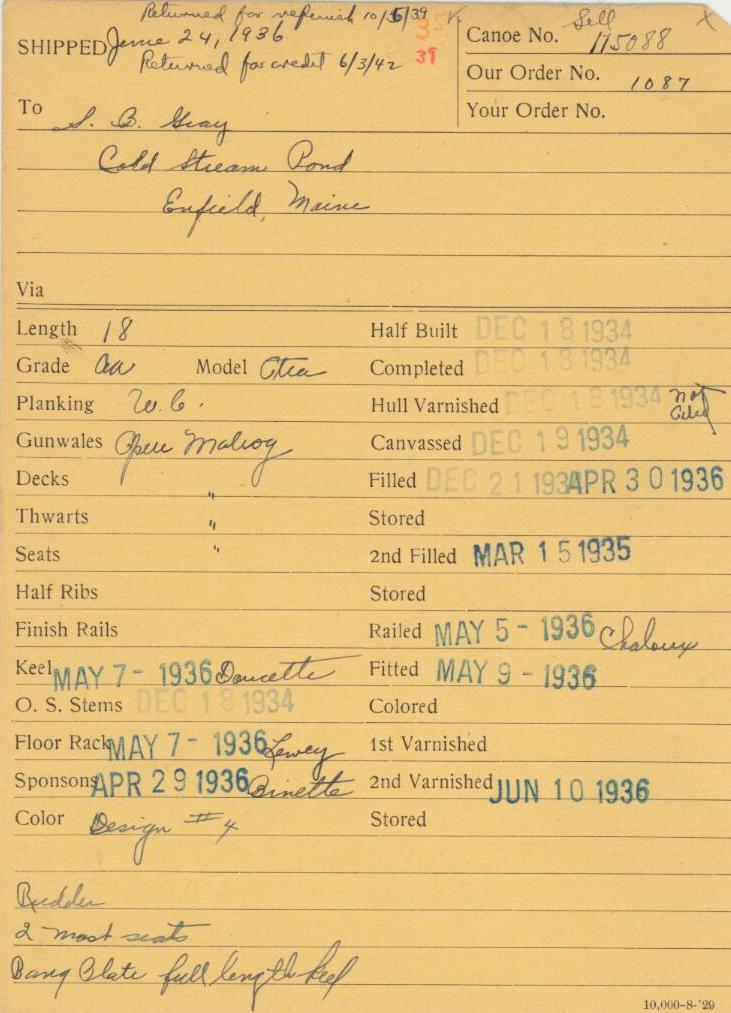 Returned for refinish 10/5/39
SHIPPED June 24, 1936
Returned for credit 6/3/42
39
Sell
Canoe No. 115088
X
Our Order No. 1087
Your Order No.
To S. B. Gray
Cold Stream Pond
Enfield, Maine
Via
Length 18
Half Built DEC 18 1934
Grade AA Model Otca
Completed DEC 18 1934
Planking W. C.
Hull Varnished DEC 18 1934 not
Gunwales Open Mahog
Canvassed DEC 19 1934
Decks "
Filled DEC 21 1934 APR 30 1936
Thwarts "
Stored
Seats "
2nd Filled MAR 15 1935
Half Ribs
Stored
Finish Rails
Railed MAY 5 - 1936 Chaloux
Keel MAY 7 - 1936 Doucette
Fitted MAY 9 - 1936
O. S. Stems DEC 18 1934
Colored
Floor Rack MAY 7 - 1936 Lewey
1st Varnished
Sponsons APR 29 1936 Binette
2nd Varnished JUN 10 1936
Color Design #4
Stored
Rudder
2 mast seats
Bang Plate full length keel
10,000-8-'29